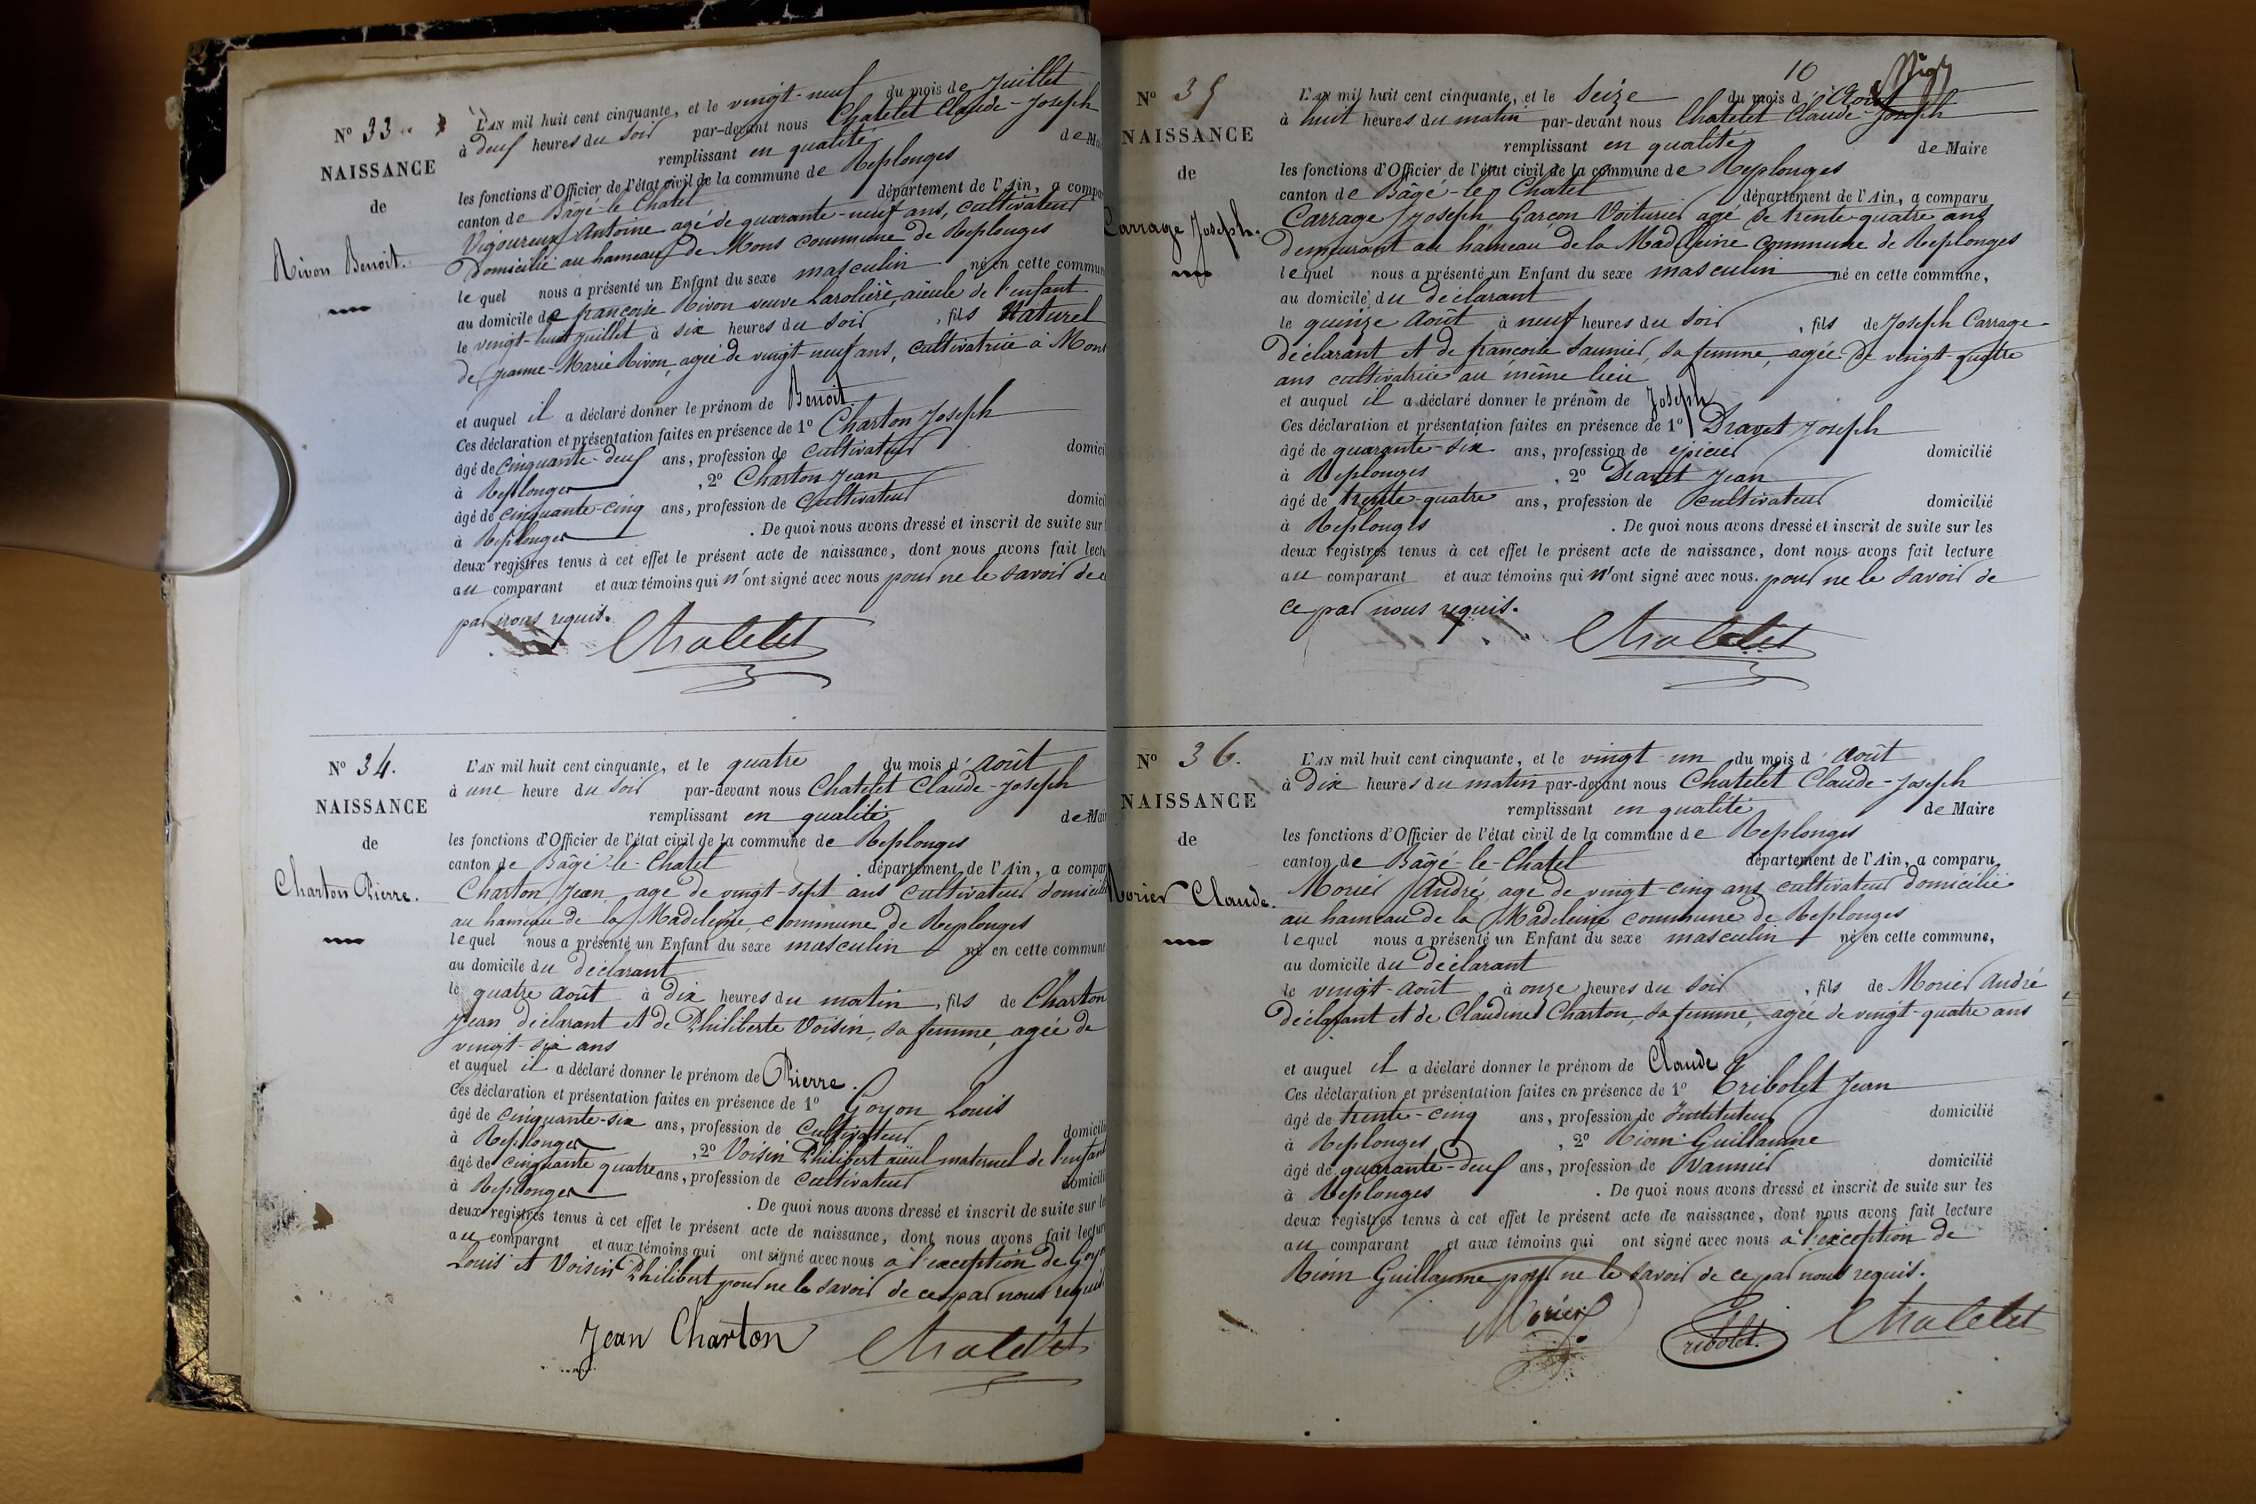 N° 33.
NAISSANCE
de
Rivon Benoit.
L'AN mil huit cent cinquante, et le vingt-neuf du mois de Juillet
à deux heures du Soir par-devant nous Chatelet Claude-Joseph
remplissant en qualité de Ma
les fonctions d'Officier de l'état civil de la commune de Replonges
canton de Bâgé-le-Chatel département de l'Ain, a compar
Vigoureux Antoine agé de quarante-neuf ans, cultivateur
Domicilié au hameau de Mons commune de Replonges
lequel nous a présenté un Enfant du sexe masculin né en cette commun
au domicile de françoise Rivon veuve Larolière, aïeule de l'enfant
le vingt-huit juillet à six heures du soir, fils Naturel
de jeanne-Marie Rivon, agée de vingt-neuf ans, cultivatrice à Mons
et auquel il a déclaré donner le prénom de Benoit
Ces déclaration et présentation faites en présence de 1° Charton Joseph
âgé de cinquante-deux ans, profession de cultivateur domicil
à Replonges, 2° Charton Jean
âgé de cinquante-cinq ans, profession de cultivateur domicil
à Replonges. De quoi nous avons dressé et inscrit de suite sur
deux registres tenus à cet effet le présent acte de naissance, dont nous avons fait lectu
au comparant et aux témoins qui n'ont signé avec nous pour ne le savoir de c
par nous requis.
Chatelet
N° 34.
NAISSANCE
de
Charton Pierre.
L'AN mil huit cent cinquante, et le quatre du mois d'Août
à une heure du soir par-devant nous Chatelet Claude-Joseph
remplissant en qualité de Mair
les fonctions d'Officier de l'état civil de la commune de Replonges
canton de Bâgé-le-Chatel département de l'Ain, a compar
Charton Jean, age de vingt-sept ans cultivateur domicilié
au hameau de la Madeleine, commune de Replonges
lequel nous a présenté un Enfant du sexe masculin né en cette commune
au domicile du déclarant
le quatre Août à dix heures du matin, fils de Charton
Jean déclarant et de Philiberte Voisin, sa femme, agée de
vingt-six ans
et auquel il a déclaré donner le prénom de Pierre.
Ces déclaration et présentation faites en présence de 1° Goyon Louis
âgé de cinquante-six ans, profession de cultivateur domicili
à Replonges, 2° Voisin Philibert aïeul maternel de l'enfant
âgé de cinquante quatre ans, profession de cultivateur domicili
à Replonges. De quoi nous avons dressé et inscrit de suite sur le
deux registres tenus à cet effet le présent acte de naissance, dont nous avons fait lecture
au comparant et aux témoins qui ont signé avec nous à l'exception de Goyo
Louis et Voisin Philibert pour ne le savoir de ce par nous requis
Jean Charton Chatelet
10
N° 35
NAISSANCE
de
Carrage Joseph.
L'AN mil huit cent cinquante, et le Seize du mois d'Août
à huit heures du matin par-devant nous Chatelet Claude-Joseph
remplissant en qualité de Maire
les fonctions d'Officier de l'état civil de la commune de Replonges
canton de Bâgé-le-Chatel département de l'Ain, a comparu
Carrage Joseph Garçon Voiturier agé de trente quatre ans
demeurant au hameau de la Madeleine commune de Replonges
lequel nous a présenté un Enfant du sexe masculin né en cette commune,
au domicile du déclarant
le quinze Août à neuf heures du soir, fils de Joseph Carrage
déclarant et de françoise Saunier, sa femme, agée de vingt-quatre
ans cultivatrice au même lieu
et auquel il a déclaré donner le prénom de Joseph
Ces déclaration et présentation faites en présence de 1° Dravet Joseph
âgé de quarante-six ans, profession de épicier domicilié
à Replonges, 2° Dravet Jean
âgé de trente-quatre ans, profession de cultivateur domicilié
à Replonges. De quoi nous avons dressé et inscrit de suite sur les
deux registres tenus à cet effet le présent acte de naissance, dont nous avons fait lecture
au comparant et aux témoins qui n'ont signé avec nous. pour ne le savoir de
ce par nous requis.
Chatelet
N° 36.
NAISSANCE
de
Morier Claude.
L'AN mil huit cent cinquante, et le vingt-un du mois d'Août
à dix heures du matin par-devant nous Chatelet Claude-Joseph
remplissant en qualité de Maire
les fonctions d'Officier de l'état civil de la commune de Replonges
canton de Bâgé-le-Chatel département de l'Ain, a comparu
Morier André, age de vingt-cinq ans cultivateur domicilié
au hameau de la Madeleine commune de Replonges
lequel nous a présenté un Enfant du sexe masculin né en cette commune,
au domicile du déclarant
le vingt-Août à onze heures du soir, fils de Morier André
déclarant et de Claudine Charton, sa femme, agée de vingt-quatre ans
et auquel il a déclaré donner le prénom de Claude
Ces déclaration et présentation faites en présence de 1° Tribolet Jean
âgé de trente-cinq ans, profession de Instituteur domicilié
à Replonges, 2° Riom Guillaume
âgé de quarante-deux ans, profession de Vannier domicilié
à Replonges. De quoi nous avons dressé et inscrit de suite sur les
deux registres tenus à cet effet le présent acte de naissance, dont nous avons fait lecture
au comparant et aux témoins qui ont signé avec nous à l'exception de
Riom Guillaume pour ne le savoir de ce par nous requis.
Morier Tribolet. Chatelet